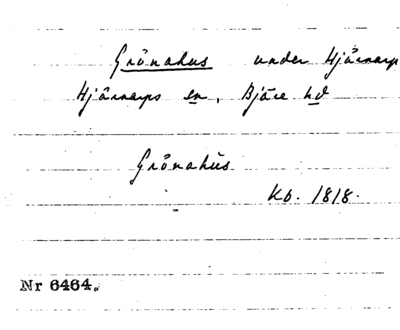 Grönahus under Hjärnarp
Hjärnarps sn, Bjäre hd
Grönahus
Kb. 1818.
Nr 6464.